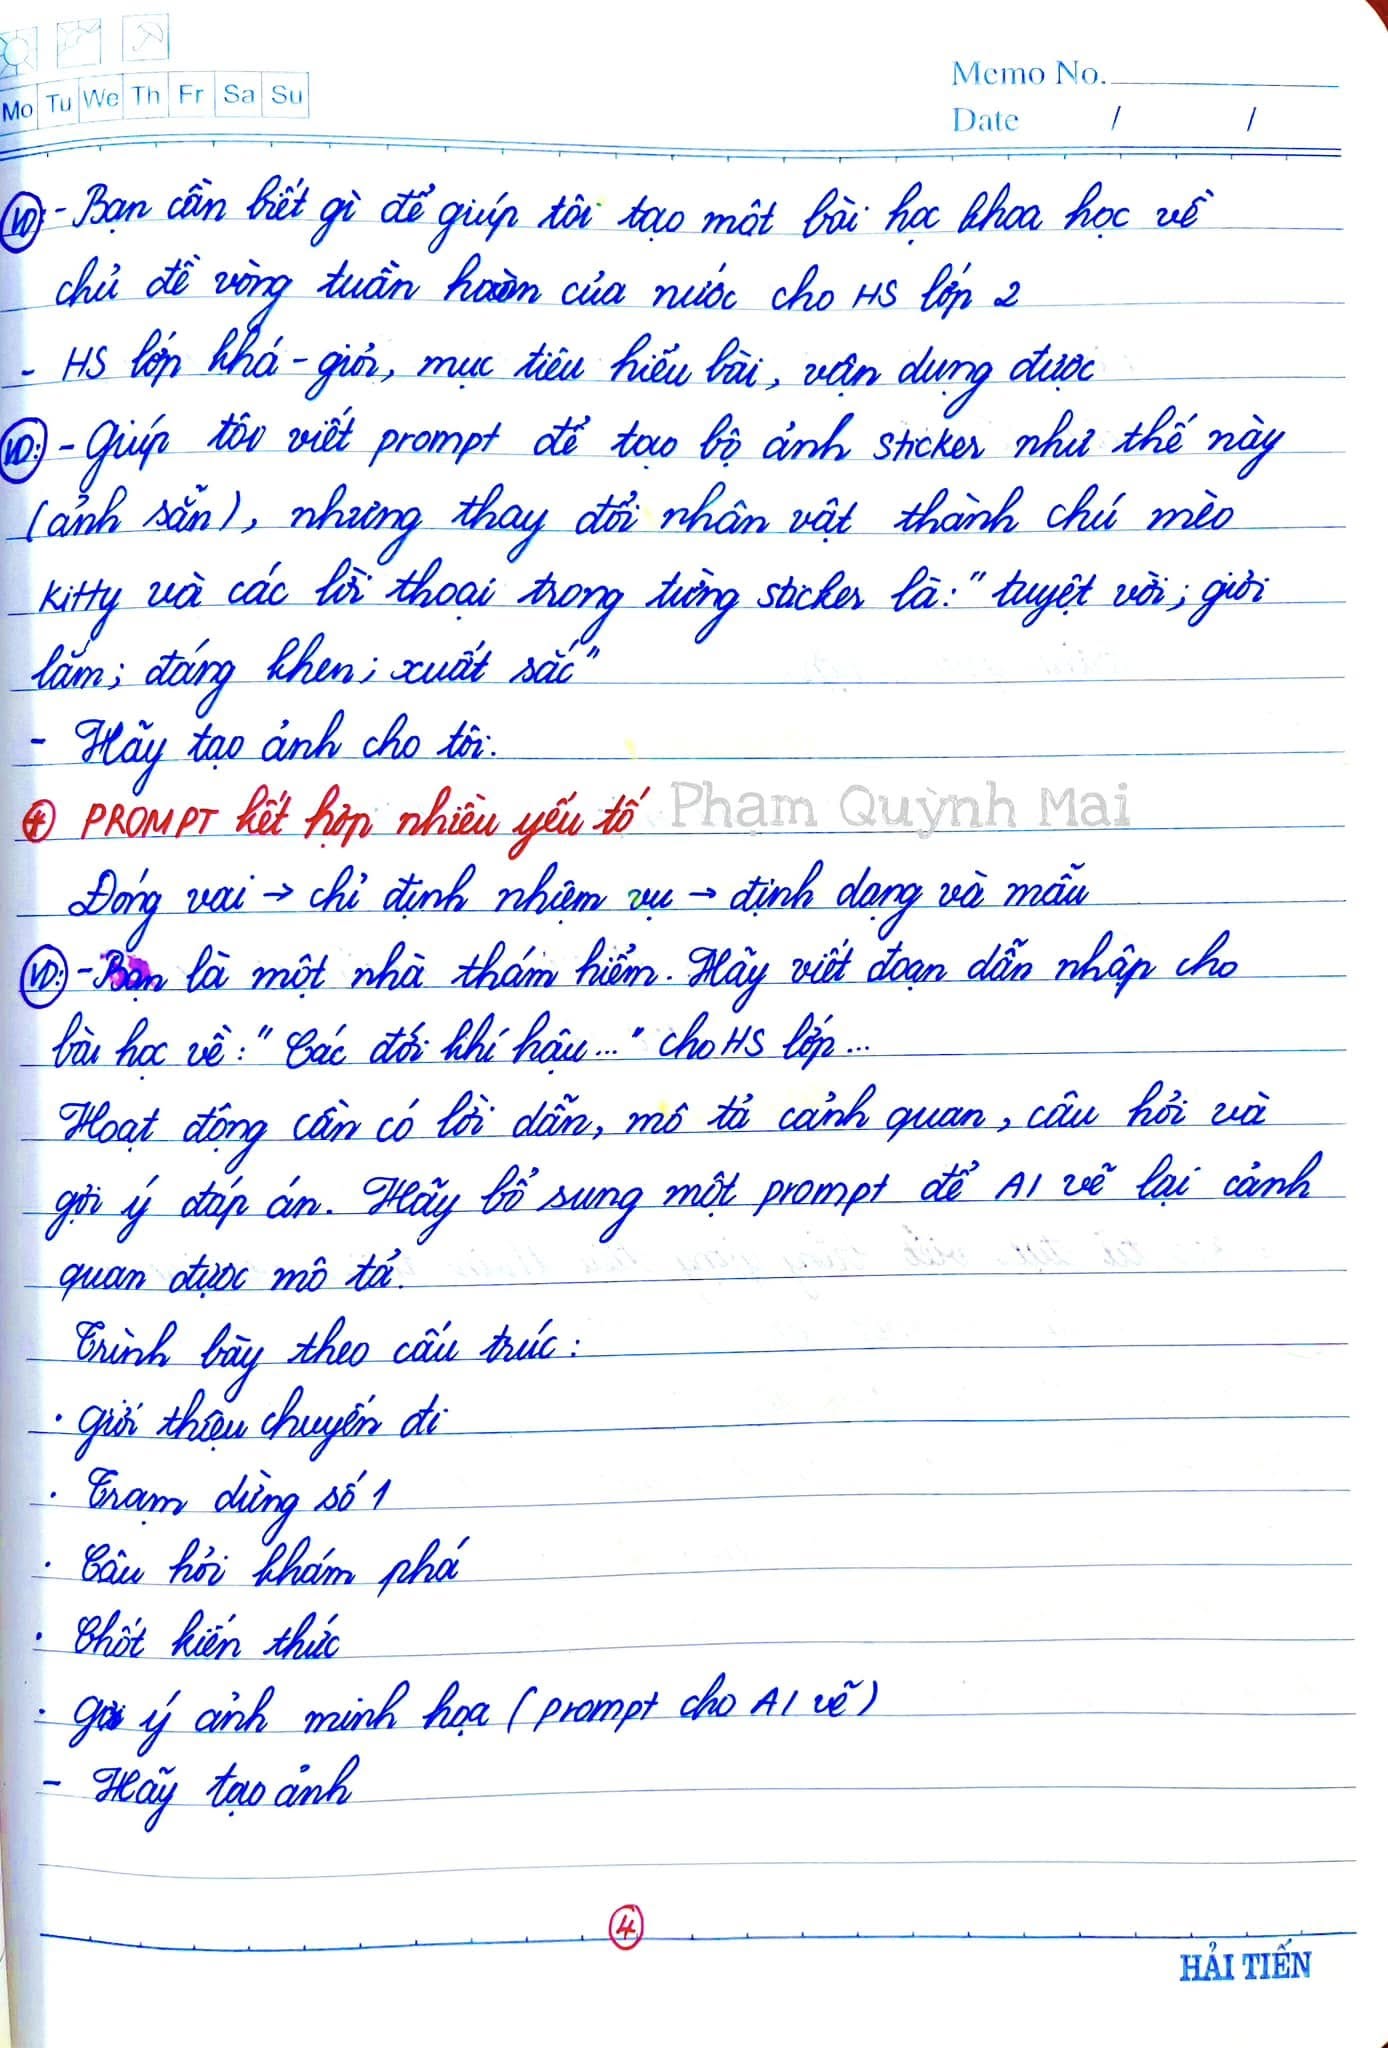 Mo Tu We Th Fr Sa Su
Memo No.
Date / /
VD: - Bạn cần biết gì để giúp tôi tạo một bài học khoa học về
chủ đề vòng tuần hoàn của nước cho HS lớp 2
- HS lớp khá - giỏi, mục tiêu hiểu bài, vận dụng được
VD: - Giúp tôi viết prompt để tạo bộ ảnh sticker như thế này
(ảnh sẵn), nhưng thay đổi nhân vật thành chú mèo
Kitty và các lời thoại trong từng sticker là: "tuyệt vời; giỏi
lắm; đáng khen; xuất sắc"
- Hãy tạo ảnh cho tôi.
⊕ PROMPT kết hợp nhiều yếu tố
Phạm Quỳnh Mai
Đóng vai → chỉ định nhiệm vụ → định dạng và mẫu
VD: - Bạn là một nhà thám hiểm. Hãy viết đoạn dẫn nhập cho
bài học về: "Các đới khí hậu..." cho HS lớp...
Hoạt động cần có lời dẫn, mô tả cảnh quan, câu hỏi và
gợi ý đáp án. Hãy bổ sung một prompt để AI vẽ lại cảnh
quan được mô tả.
Trình bày theo cấu trúc:
· Giới thiệu chuyến đi
· Trạm dừng số 1
· Câu hỏi khám phá
· Chốt kiến thức
· Gợi ý ảnh minh họa (prompt cho AI vẽ)
- Hãy tạo ảnh
4
HẢI TIẾN